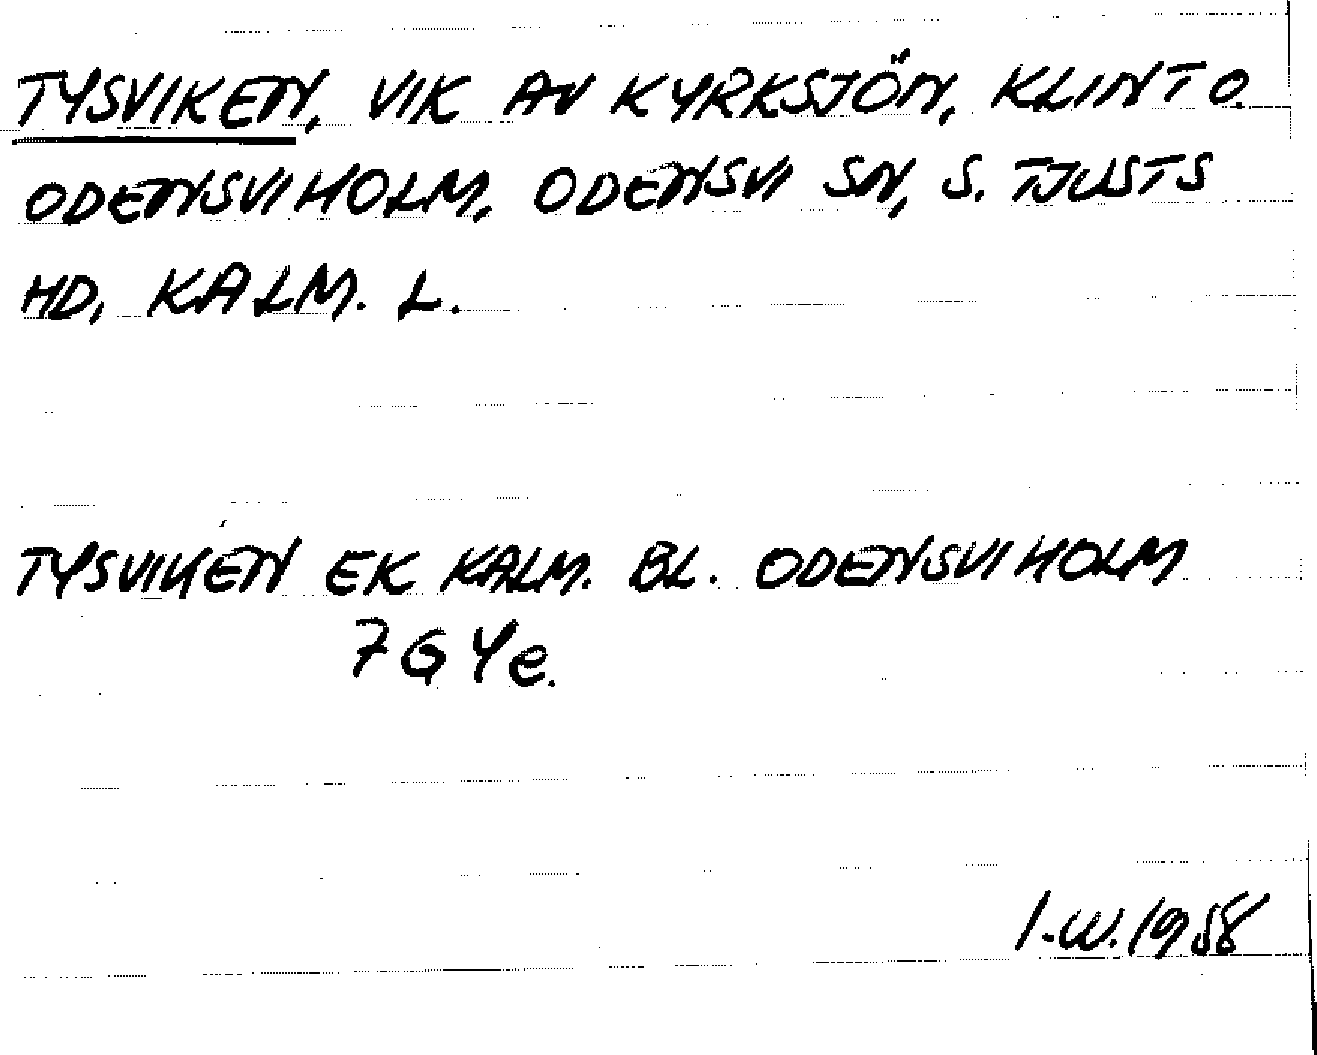 TYSVIKEN, VIK AV KYRKSJÖN, KLINT O.
ODENSVIHOLM, ODENSVI SN, S. TJUSTS
HD, KALM. L.
TYSVIKEN EK KALM. BL. ODENSVIHOLM
7G 4e.
I.W. 1958